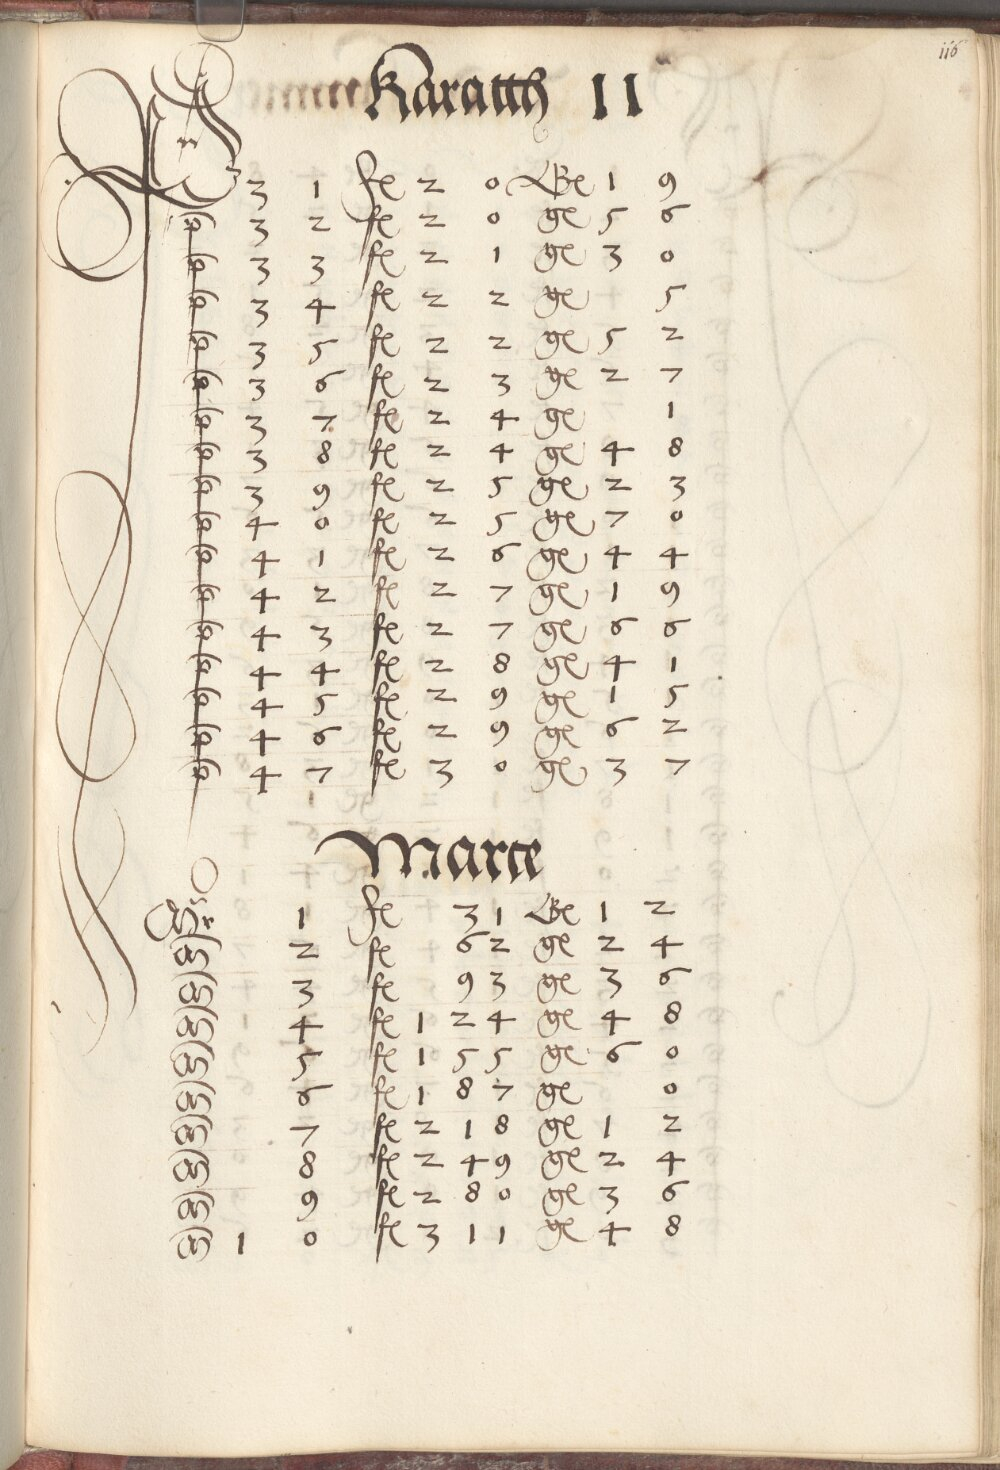 116
Karatth 11
3 1 fl 2 0 ge 1 9
3 2 fl 2 0 ge 5 6
3 3 fl 2 1 ge 3 0
3 4 fl 2 2 ge 5
3 5 fl 2 2 ge 5 2
3 6 fl 2 3 ge 2 7
3 7 fl 2 4 ge 1
3 8 fl 2 4 ge 4 8
3 9 fl 2 5 ge 2 3
4 0 fl 2 5 ge 7 0
4 1 fl 2 6 ge 4 4
4 2 fl 2 7 ge 1 9
4 3 fl 2 7 ge 6 6
4 4 fl 2 8 ge 4 1
4 5 fl 2 9 ge 1 5
4 6 fl 2 9 ge 6 2
4 7 fl 3 0 ge 3 7
Marce
1 fl 3 1 ge 1 2
2 fl 6 2 ge 2 4
3 fl 9 3 ge 3 6
4 fl 1 2 4 ge 4 8
5 fl 1 5 5 ge 6 0
6 fl 1 8 7 ge 0
7 fl 2 1 8 ge 1 2
8 fl 2 4 9 ge 2 4
9 fl 2 8 0 ge 3 6
1 0 fl 3 1 1 ge 4 8